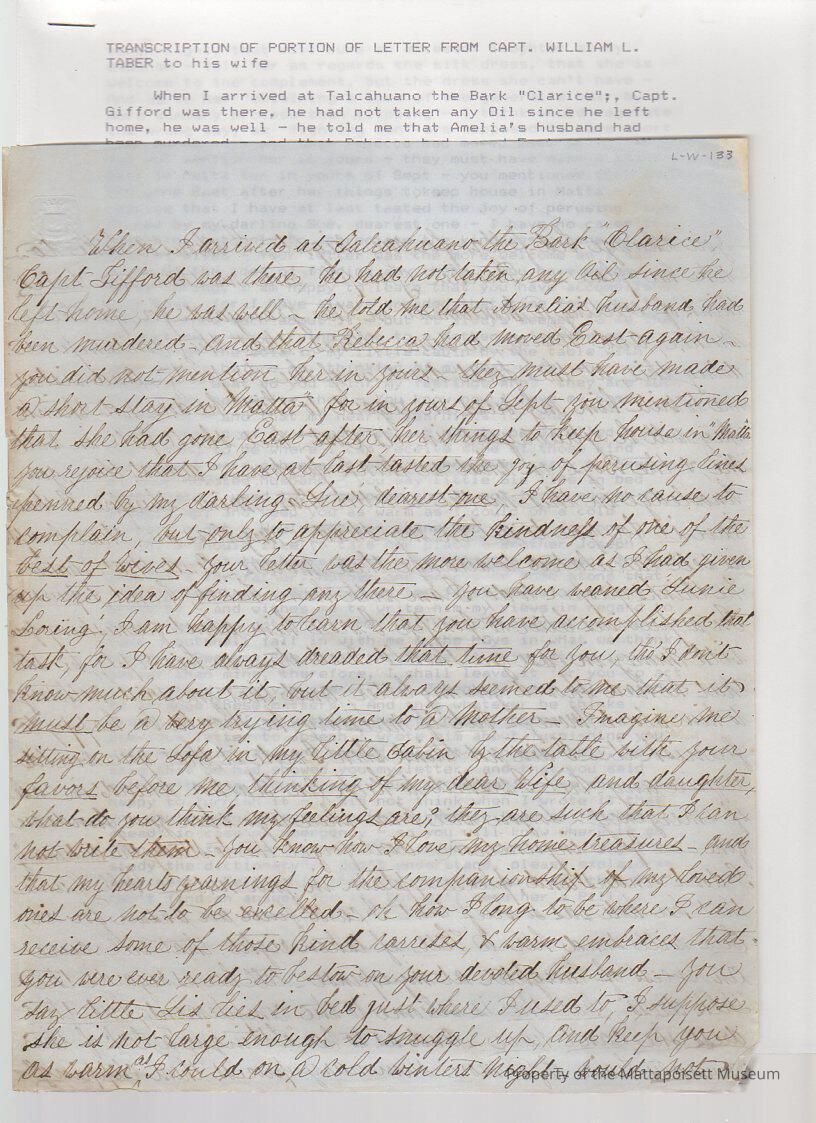 TRANSCRIPTION OF PORTION OF LETTER FROM CAPT. WILLIAM L.
TABER to his wife
When I arrived at Talcahuano the Bark "Clarice";, Capt.
Gifford was there, he had not taken any Oil since he left
home, he was well - he told me that Amelia's husband had
been murdered - and that Rebecca had moved East
L-W-133
When I arrived at Talcahuano the Bark "Clarice",
Capt Gifford was there, he had not taken any Oil since he
left home, he was well - he told me that Amelia's husband had
been murdered - and that Rebecca had moved East again -
you did not mention her in yours - they must have made
a short stay in "Matta" for in yours of Sept you mentioned
that she had gone East after her things to keep house in "Matta
you rejoice that I have at last tasted the joy of perusing lines
penned by my darling Sue, dearest one, I have no cause to
complain, but only to appreciate the kindness of one of the
best of Wives - your letter was the more welcome as I had given
up the idea of finding any there - you have weaned
I am happy to learn that you have accomplished that
task, for I have always dreaded that time for you, tho' I don't
know much about it, but it always seemed to me that it
must be a very trying time to a Mother - Imagine me
sitting on the Sofa in my little Cabin by the table with your
favors before me thinking of my dear Wife, and daughter,
what do you think my feelings are, they are such that I can
not write them - you know how I love my home treasures - and
that my hearts yearnings for the companionship of my loved
ones are not to be excelled - oh how I long to be where I can
receive some of those kind carreses, & warm embraces that
you were ever ready to bestow on your devoted husband - you
say little Sis lies in bed just where I used to, I suppose
she is not large enough to snuggle up, and keep you
as warm as I could on a cold winters night would not
Property of the Mattapoisett Museum